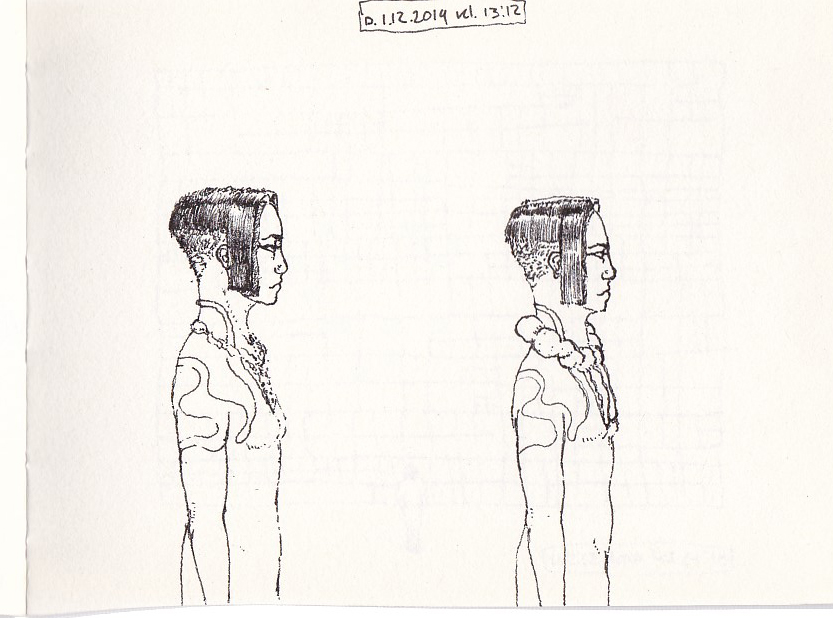 D. 1.12.2014 kl. 13:12